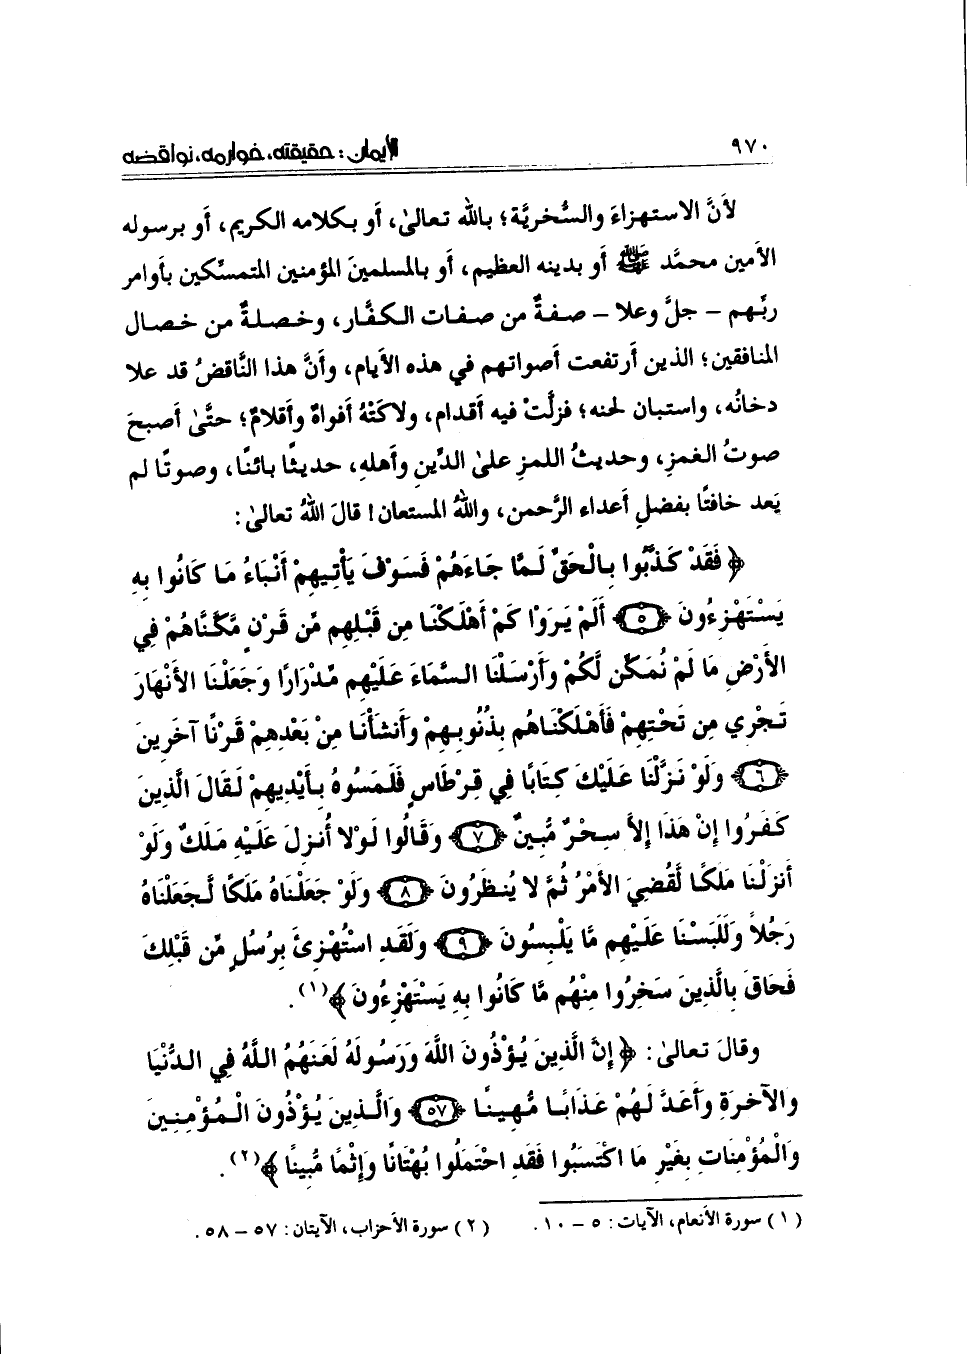 ٩٧٠
الإيمان: حقيقته، خوارمه، نواقضه
لأنَّ الاستهزاءَ والسُّخريَّة؛ بالله تعالىٰ، أو بكلامه الكريم، أو برسوله
الأمين محمَّد ﷺ أو بدينه العظيم، أو بالمسلمينَ المؤمنين المتمسِّكين بأوامر
ربِّهم – جلَّ وعلا – صفةٌ من صفات الكفَّار، وخصلةٌ من خصال
المنافقين؛ الذين أرتفعت أصواتهم في هذه الأيام، وأنَّ هذا النَّاقضُ قد علا
دخانُه، واستبان لحنه؛ فزلَّتْ فيه أقدام، ولاكَتْهُ أفواهٌ وأقلامٌ؛ حتَّىٰ أصبحَ
صوتُ الغمزِ، وحديثُ اللمزِ علىٰ الدِّينِ وأهلهِ، حديثًا بائنًا، وصوتًا لم
يَعد خافتًا بفضلِ أعداء الرَّحمن، واللهُ المستعان! قالَ اللهُ تعالىٰ:
﴿ فَقَدْ كَذَّبُوا بِالْحَقِّ لَمَّا جَاءَهُمْ فَسَوْفَ يَأْتِيهِمْ أَنْبَاءُ مَا كَانُوا بِهِ
يَسْتَهْزِءُونَ ﴿٥﴾ أَلَمْ يَرَوْا كَمْ أَهْلَكْنَا مِن قَبْلِهِم مِّن قَرْنٍ مَّكَّنَّاهُمْ فِي
الأَرْضِ مَا لَمْ نُمَكِّن لَّكُمْ وَأَرْسَلْنَا السَّمَاءَ عَلَيْهِم مِّدْرَارًا وَجَعَلْنَا الأَنْهَارَ
تَجْرِي مِن تَحْتِهِمْ فَأَهْلَكْنَاهُم بِذُنُوبِهِمْ وَأَنشَأْنَا مِنْ بَعْدِهِمْ قَرْنًا آخَرِينَ
﴿٦﴾ وَلَوْ نَزَّلْنَا عَلَيْكَ كِتَابًا فِي قِرْطَاسٍ فَلَمَسُوهُ بِأَيْدِيهِمْ لَقَالَ الَّذِينَ
كَفَرُوا إِنْ هَذَا إِلاَّ سِحْرٌ مُّبِينٌ ﴿٧﴾ وَقَالُوا لَوْلا أُنزِلَ عَلَيْهِ مَلَكٌ وَلَوْ
أَنزَلْنَا مَلَكًا لَّقُضِيَ الأَمْرُ ثُمَّ لا يُنظَرُونَ ﴿٨﴾ وَلَوْ جَعَلْنَاهُ مَلَكًا لَّجَعَلْنَاهُ
رَجُلاً وَلَلَبَسْنَا عَلَيْهِم مَّا يَلْبِسُونَ ﴿٩﴾ وَلَقَدِ اسْتُهْزِئَ بِرُسُلٍ مِّن قَبْلِكَ
فَحَاقَ بِالَّذِينَ سَخِرُوا مِنْهُم مَّا كَانُوا بِهِ يَسْتَهْزِءُونَ ﴾(١).
وقالَ تعالىٰ: ﴿ إِنَّ الَّذِينَ يُؤْذُونَ اللَّهَ وَرَسُولَهُ لَعَنَهُمُ اللَّهُ فِي الدُّنْيَا
وَالآخِرَةِ وَأَعَدَّ لَهُمْ عَذَابًا مُّهِينًا ﴿٥٧﴾ وَالَّذِينَ يُؤْذُونَ الْمُؤْمِنِينَ
وَالْمُؤْمِنَاتِ بِغَيْرِ مَا اكْتَسَبُوا فَقَدِ احْتَمَلُوا بُهْتَانًا وَإِثْمًا مُّبِينًا ﴾(٢).
(١) سورة الأنعام، الآيات: ٥ – ١٠.
(٢) سورة الأحزاب، الآيتان: ٥٧ – ٥٨.